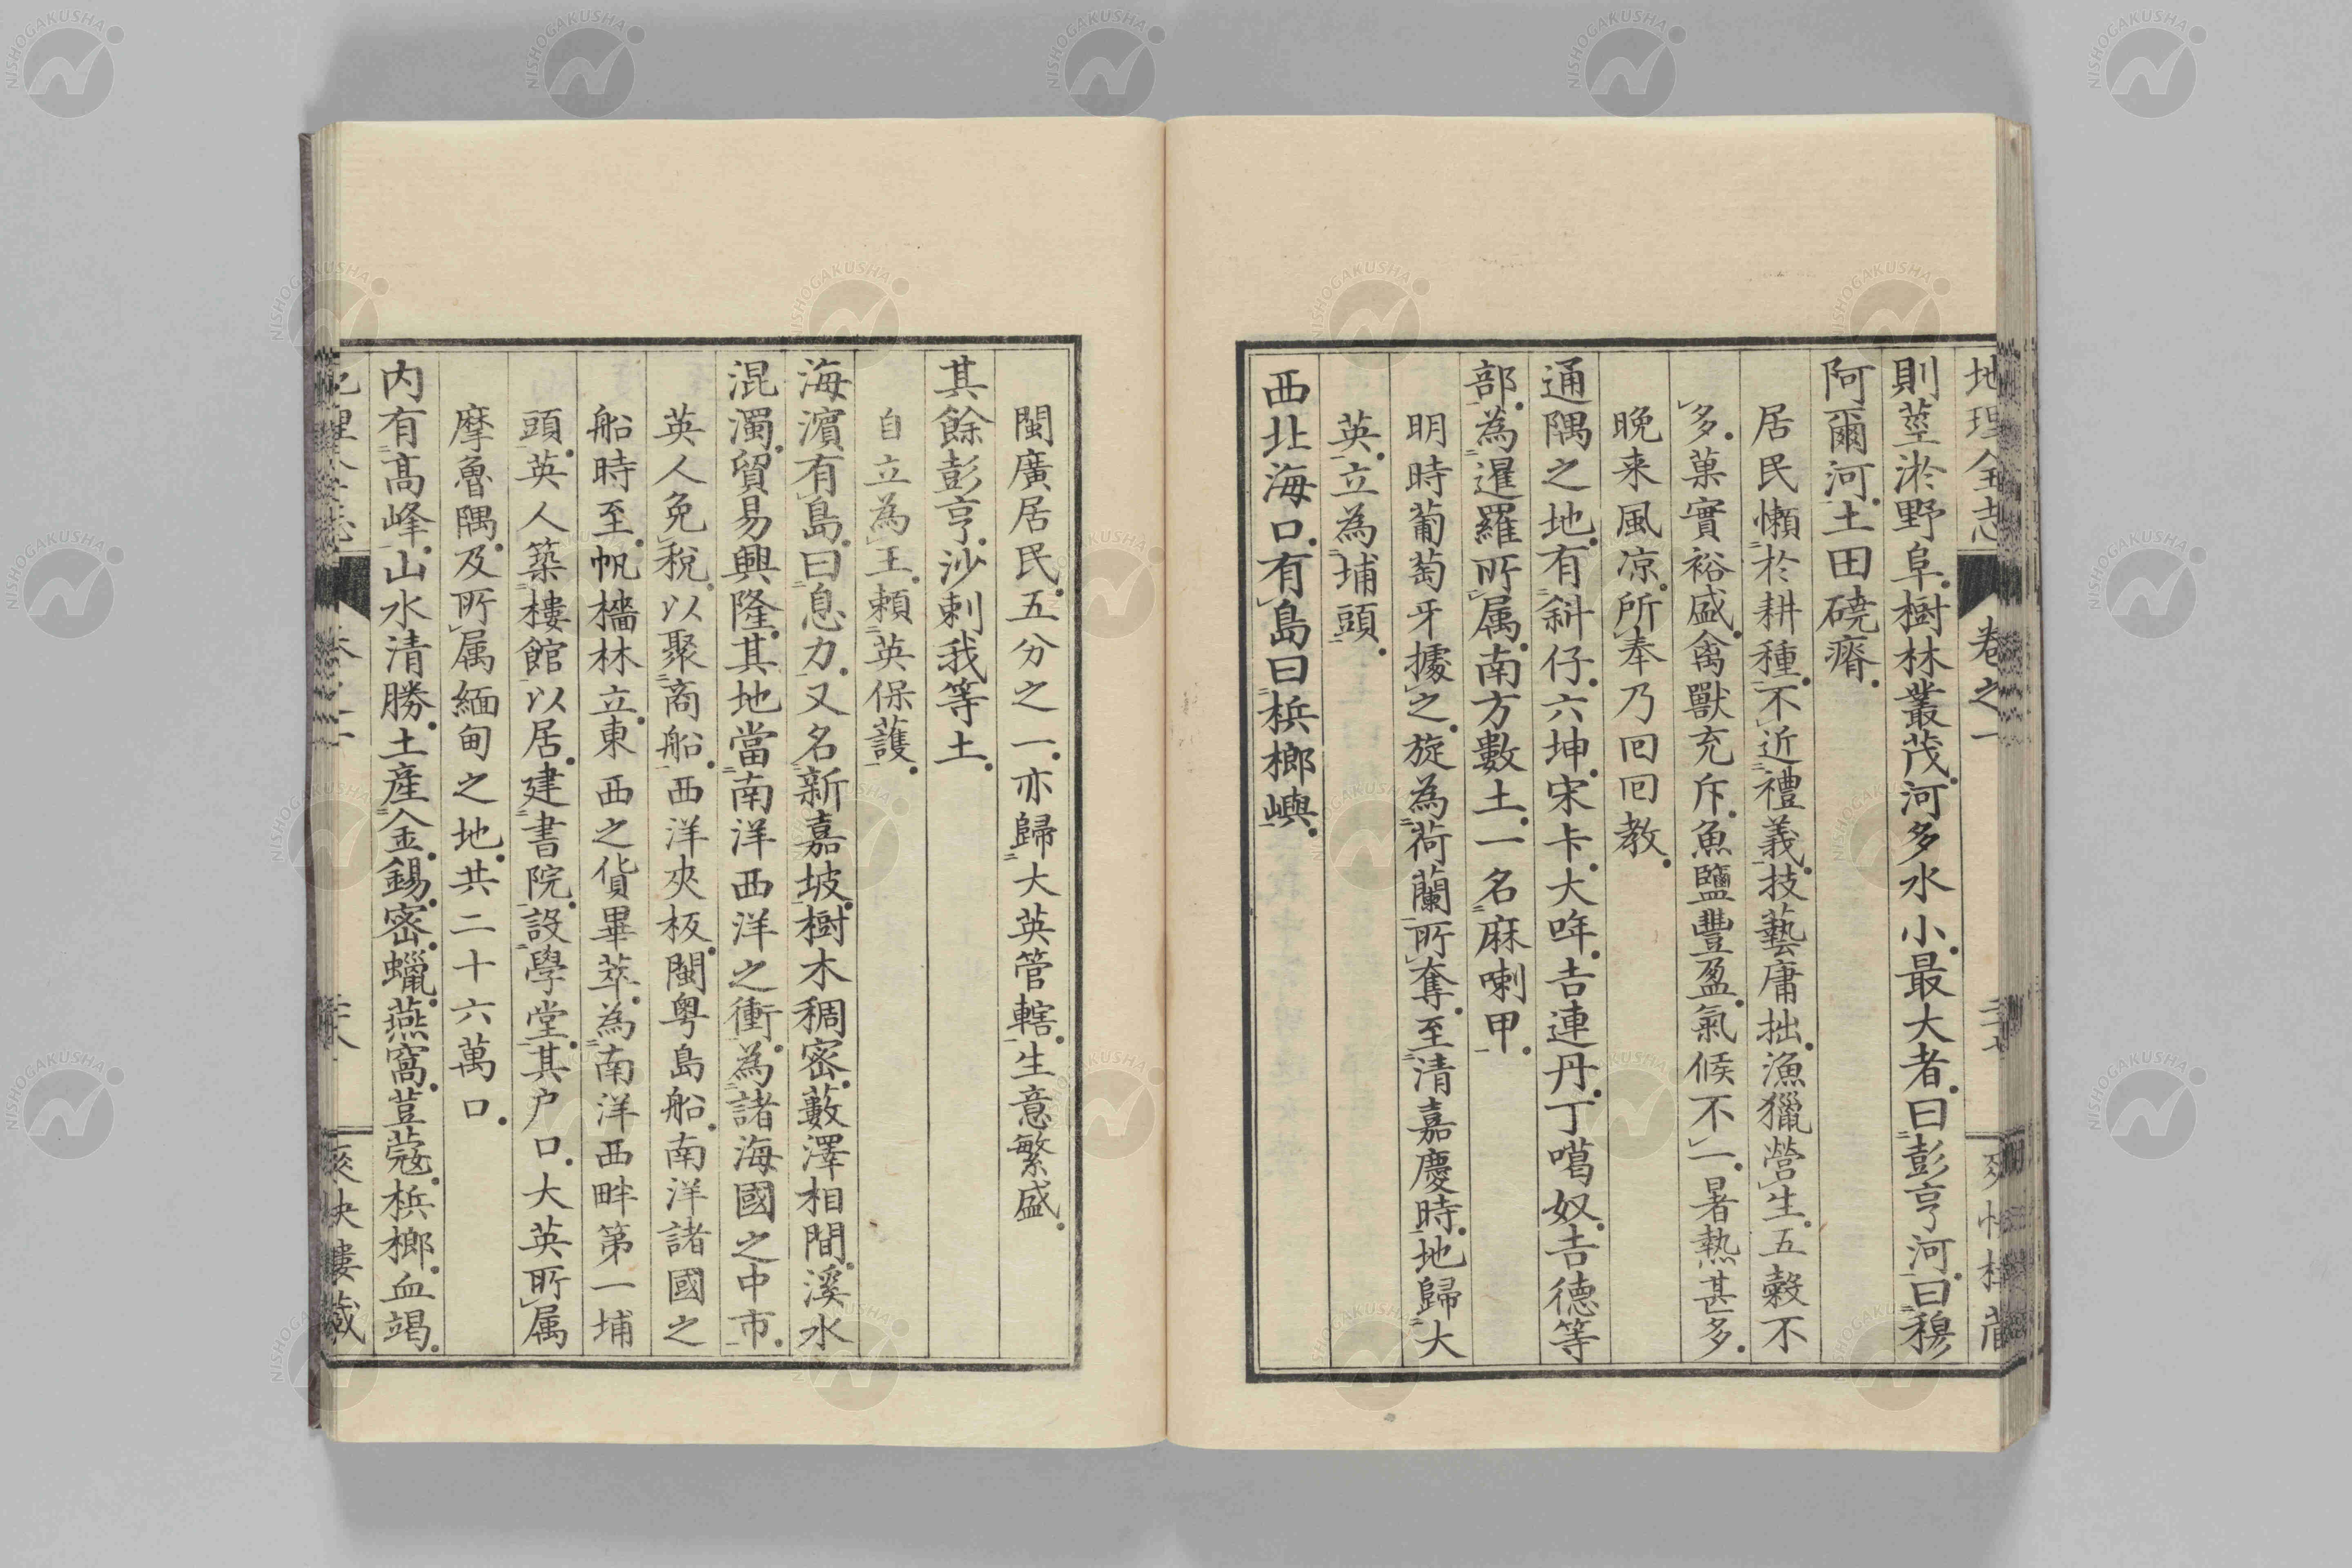 地理全志 卷之一
則莖淤野阜。樹林叢茂。河多水小。最大者。曰彭亨河。曰穆
阿爾河。土田磽瘠。
居民懶於耕種。不近禮義。技藝庸拙。漁獵營生。五穀不
多。菓實裕盛。禽獸充斥。魚鹽豐盈。氣候不一。暑熱甚多。
晚来風凉。所奉乃回回教。
通隅之地。有斜仔。六坤。宋卡。大哖。吉連丹。丁噶奴。吉德等
部。為暹羅所属。南方數土。一名麻喇甲。
明時葡萄牙據之。旋為荷蘭所奪。至清嘉慶時。地歸大
英。立為埔頭。
西北海口。有島曰梹榔嶼。
閩廣居民。五分之一。亦歸大英管轄。生意繁盛。
其餘彭亨。沙剌我等土。
自立為王。頼英保護。
海濵有島。曰息力。又名新嘉坡。樹木稠密。藪澤相間。溪水
混濁。貿易興隆。其地當南洋西洋之衝。為諸海國之中市。
英人免税。以聚商船。西洋夾板。閩粤島船。南洋諸國之
船時至。帆檣林立。東西之貨畢萃。為南洋西畔第一埔
頭。英人築樓館以居。建書院。設學堂。其户口。大英所属
摩魯隅。及所属緬甸之地。共二十六萬口。
内有高峰。山水清勝。土產金。錫。密蠟。燕窩。荳蔻。梹榔。血竭。